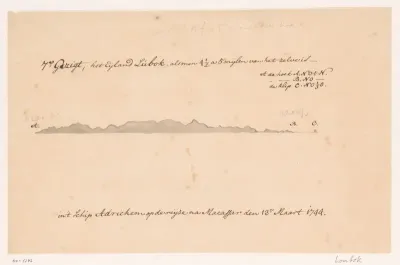 7de Gezigt, het Eyland Lubok, alsmen 4½ a 5 mylen van het zelve is
A de hoek A. N O t N.
B. N O
de klip C. N O ½ O.
A. B. C.
int schip Adrichem op de reyse na Macasser den 12e Maart 1744.
Lombok